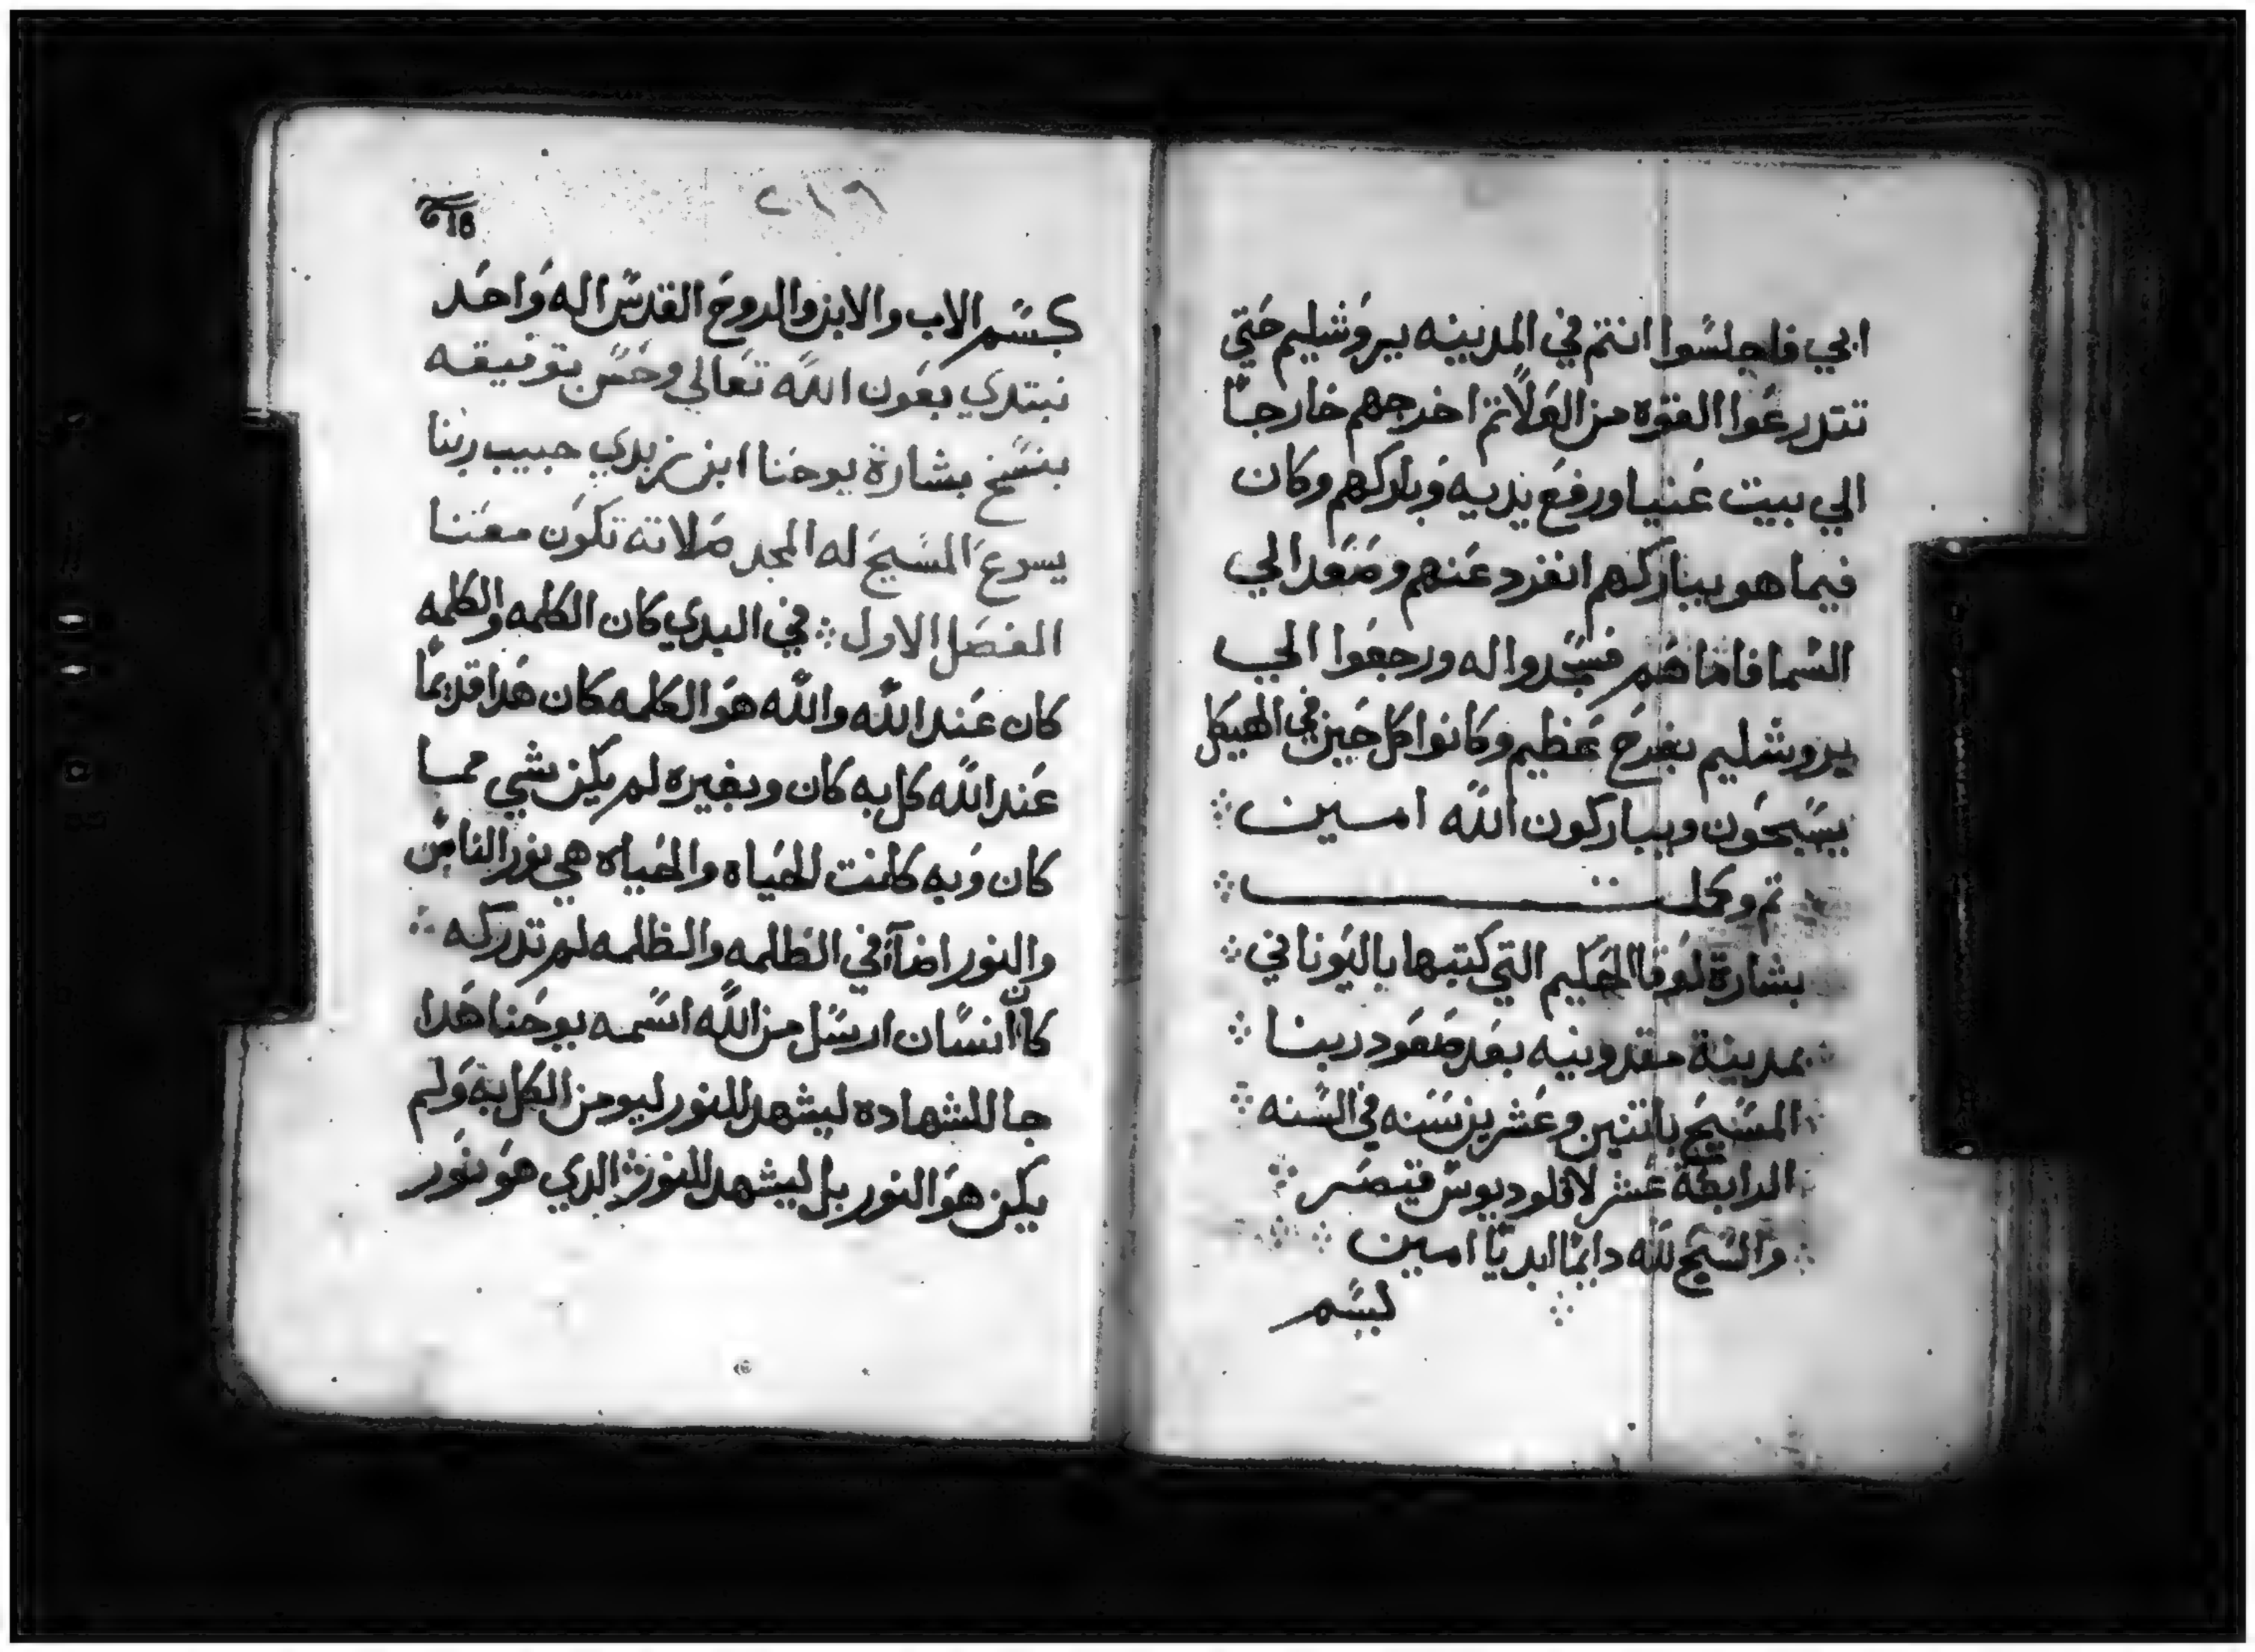 ابي فاجلسوا انتم في المدينه يروشليم حتي
تتدرعوا القوه من العلا ثم اخرجهم خارجا
الي بيت عنيا ورفع يديه وباركهم وكان
فيما هو يباركهم انفرد عنهم وصعد الي
السما فاما هم فسجدوا له ورجعوا الي
يروشليم بفرح عظيم وكانوا كل حين في الهيكل
يسبحون ويباركون الله امين
تم وكملت
بشارة لوقا الحكيم التي كتبها باليوناني
بمدينة مقدونيه بعد صعود ربنا
المسيح باتنتين وعشرين سنه في السنه
الرابعة عشر لاقلوديوس قيصر
والسبح لله دايما ابديا امين
لبسم
٢١٦
بسم الاب والابن والروح القدس اله واحد
نبتدي بعون الله تعالي وحسن توفيقه
بنسخ بشارة يوحنا ابن زبدي حبيب ربنا
يسوع المسيح له المجد صلاته تكون معنا
الفصل الاول في البدي كان الكلمه والكلمه
كان عند الله والله هو الكلمه كان هدا قديما
عند الله كل به كان وبغيره لم يكن شي مما
كان وبه كانت الحياه والحياه هي نور الناس
والنور اضآ في الظلمه والظلمه لم تدركه
كان انسان ارسل من الله اسمه يوحنا هدا
جا للشهاده ليشهد للنور ليومن الكل به ولم
يكن هو النور بل ليشهد للنور الدي هو نور